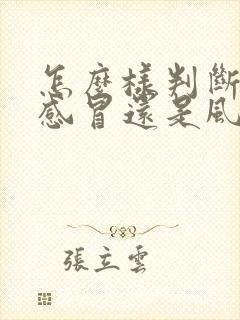 怎麼樣判斷
感冒還是風
張立雲